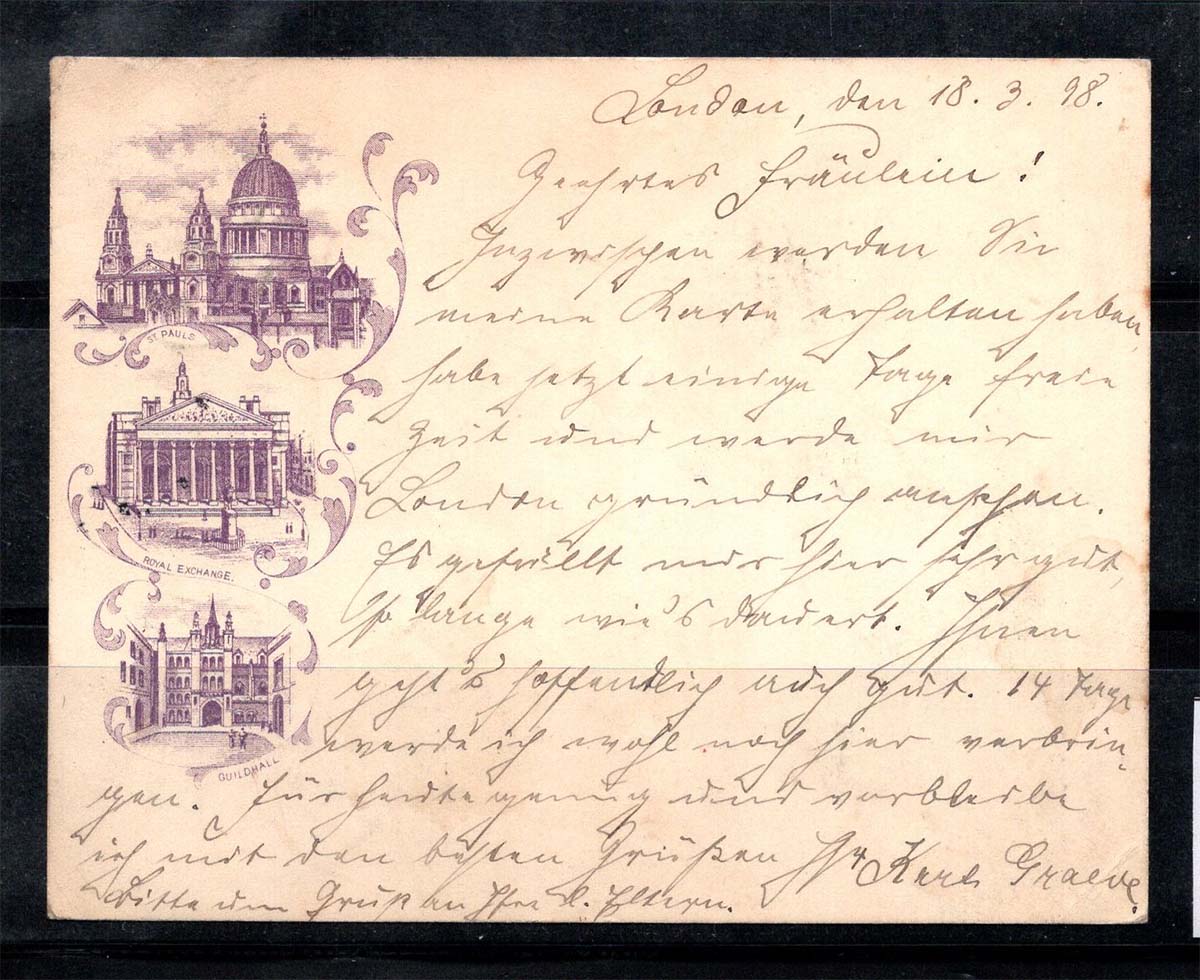 London, den 18. 3. 98.
Geehrtes Fräulein!
Inzwischen werden Sie
meine Karte erhalten haben,
habe jetzt einige Tage freie
Zeit und werde mir
London gründlich ansehen.
Es gefällt mir hier sehr gut,
so lange wie's dauert. Ihnen
geht's hoffentlich auch gut. 14 Tage
werde ich wohl noch hier verbrin-
gen. Für heute genug und verbleibe
ich mit den besten Grüßen Ihr Karl Graeve.
Bitte um Gruß an Ihre l. Eltern.
ST PAULS
ROYAL EXCHANGE.
GUILDHALL